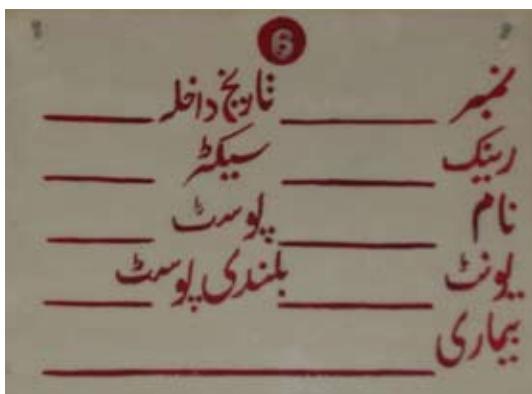 6
نمبر ________ تاریخ داخلہ ________
رینک ________ سیکٹر ________
نام ________ پوسٹ ________
یونٹ ________ بلندی پوسٹ ________
بیماری ________